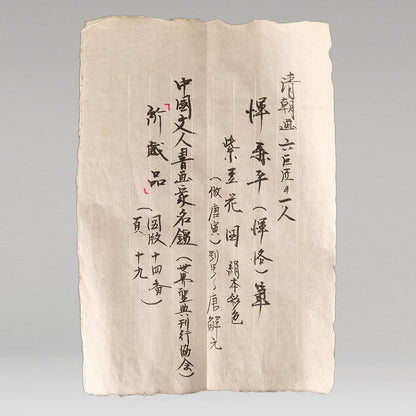 清朝画六巨匠の一人
惲壽平(惲恪)筆
紫豆花図 絹本彩色
(倣唐寅)別号唐解元
中國文人書画家名鑑(世界聖典刊行協会)
所載品(図版十四番
頁十九)